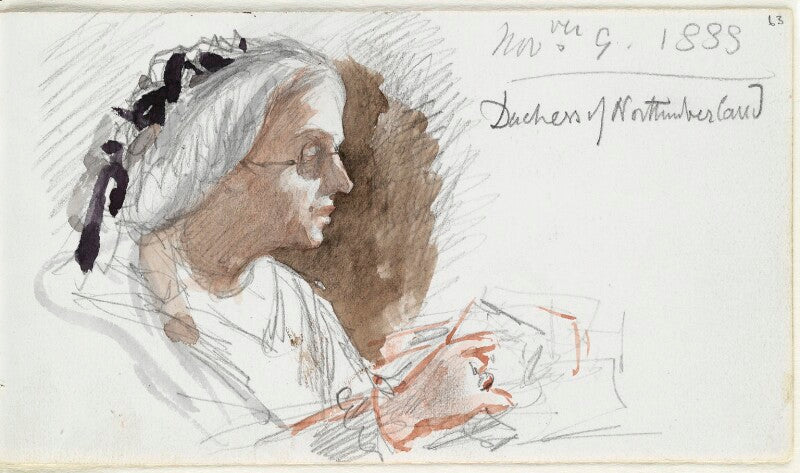 63
Nov ver 9. 1889
Duchess of Northumberland